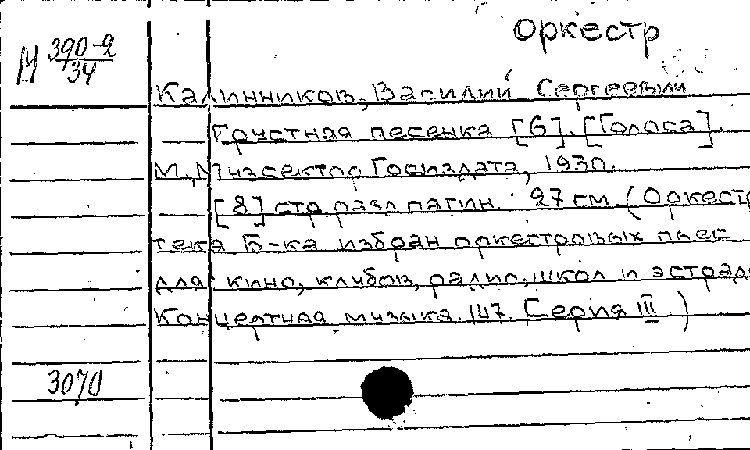 Оркестр
М 390-2/34
Калинников, Василий Сергеевич
Грустная песенка [6]. [Голоса].
М., Музсектор Госиздата, 1930.
[8] стр. разл. пагин. 27 см (Оркестро
тека Б-ка избран оркестровых пьес
для кино, клубов, радио, школ и эстрады
Концертная музыка. 147. Серия III)
3070